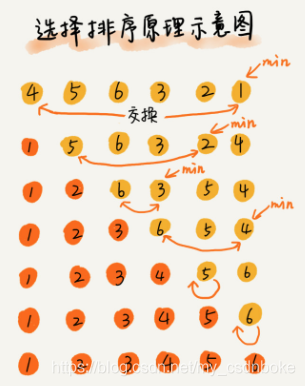 选择排序原理示意图
min
4 5 6 3 2 1
交换
min
1 5 6 3 2 4
min
1 2 6 3 5 4
min
1 2 3 6 5 4
1 2 3 4 5 6
1 2 3 4 5 6
1 2 3 4 5 6
https://blog.csdn.net/my_csdnboke